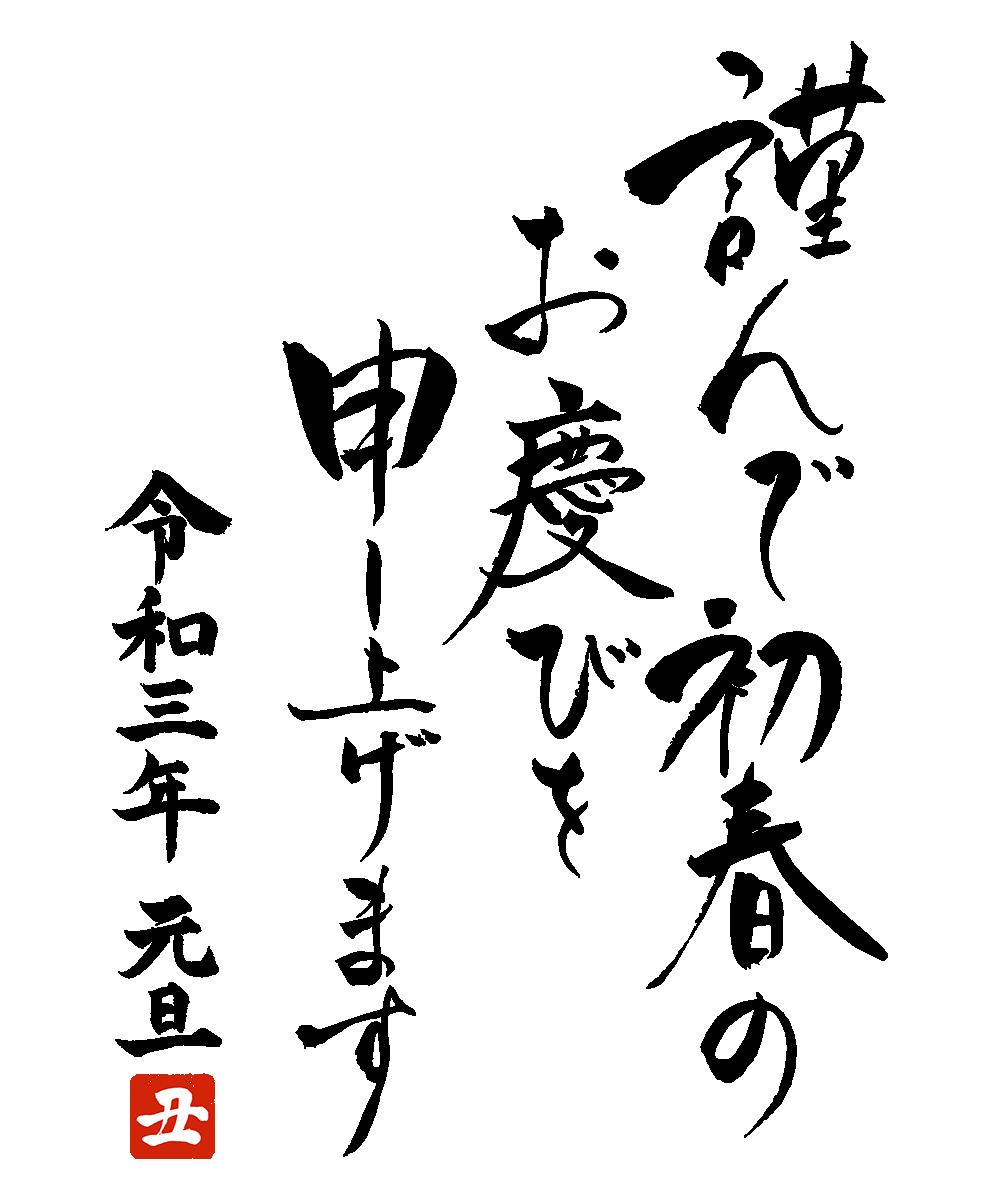 謹んで初春の
お慶びを
申し上げます
令和三年 元旦
丑